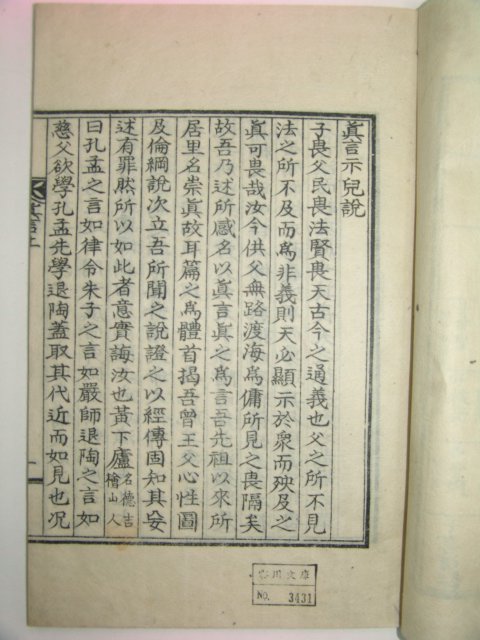 眞言示兒說
子畏父民畏法賢畏天古今之通義也父之所不見
法之所不及而爲非義則天必顯示於衆而殃及之
眞可畏哉汝今供父無路渡海爲傭所見之畏隔矣
故吾乃述所感名以眞言眞之爲言吾先祖以來所
居里名崇眞故耳篇之爲體首揭吾曾王父心性圖
及倫綱說次立吾所聞之說證之以經傳固知其妄
述有罪然所以如此者意實誨汝也黃下廬名德吉檜山人
曰孔孟之言如律令朱子之言如嚴師退陶之言如
慈父欲學孔孟先學退陶蓋取其代近而如見也况
眞言
一
文庫
No. 3431